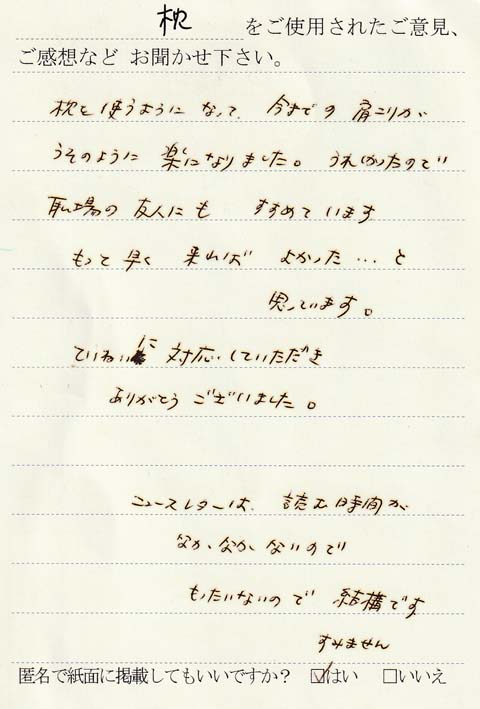 枕 をご使用されたご意見、
ご感想など お聞かせ下さい。
枕を使うようになって、今までの肩こりが
うそのように 楽になりました。うれしかったので
職場の友人にも すすめています
もっと早く 来れば よかった…と
思っています。
ていねいに 対応していただき
ありがとう ございました。
ニュースレターは、読む時間が
なかなかないので
もったいないので 結構です
すみません
匿名で紙面に掲載してもいいですか? ☑はい □いいえ